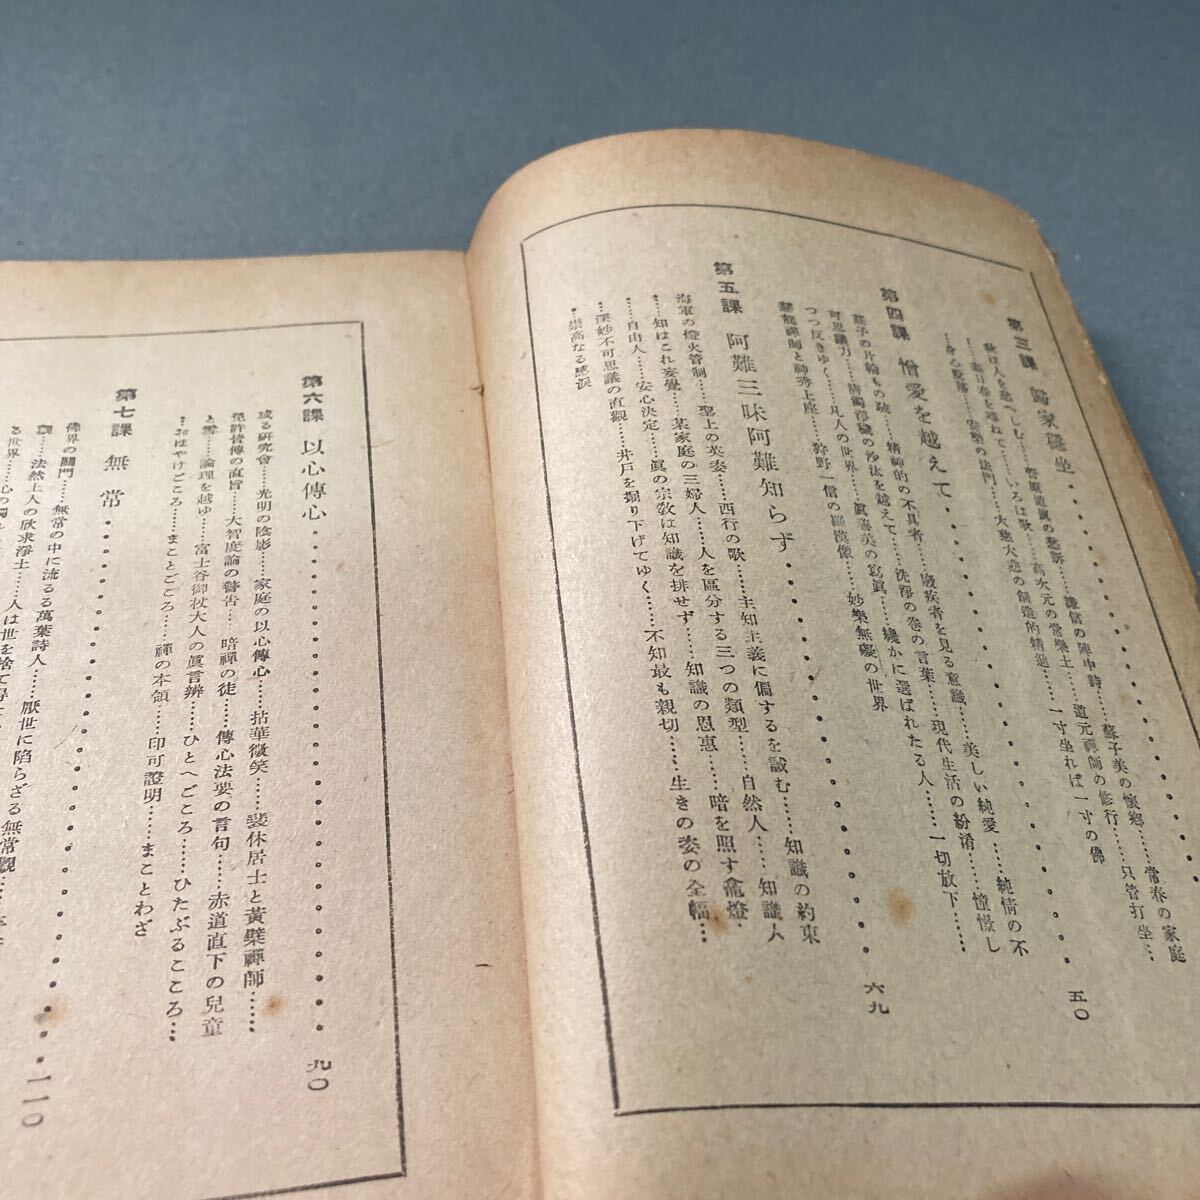 第三課 歸家穩坐・・・・・・・・・・・・・・・・・
秋は人を愁へしむ……菅原道眞の愁訴……謙信の陣中詩……蘇子美の懷鄕……常春の家庭
……いろは歌……高次元の常樂土……道元禪師の修行……只管打坐…
…身心脫落……安樂の法門……大慈大悲の創造的精進……一寸坐れば一寸の佛
第四課 憎愛を越えて・・・・・・・・・・・・・・・・五〇
蘇子の片輪もの……精神的の不具者……廢疾者を見る意識……美しい純愛……純情の不
可思議力……淸濁淨穢の沙汰を越えて……洗淨の卷の言葉……現代生活の紛淆……憧憬し
つつ反きゆく……凡人の世界……眞善美の寫眞……纔かに選ばれたる人……一切放下……
禪師と神秀上座……狩野一信の羅漢像……妙樂無礙の世界
第五課 阿難三昧阿難知らず・・・・・・・・・・・・・六九
海軍の燈火管制……聖上の英姿……西行の歌……主知主義に偏するを誡む……知識の約束
……知はこれ妄覺……某家庭の三婦人……人を區分する三つの類型……自然人……知識人
……自由人……安心決定……眞の宗敎は知識を排せず……知識の恩惠……暗を照す龕燈・
…深妙不可思議の直觀……井戶を掘り下げてゆく……不知最も親切……生きの姿の全幅…
…崇高なる感淚
第六課 以心傳心・・・・・・・・・・・・・・・・九〇
或る硏究會……光明の陰影……家庭の以心傳心……拈華微笑……裴休居士と黃檗禪師……
免許皆傳の直旨……大智度論の警吿……暗禪の徒……傳心法要の言句……赤道直下の兒童
と雪……論理を越ゆ……富士谷御杖大人の眞言辨……ひとへごころ……ひたぶるこころ…
…おほやけごころ……まことごころ……禪の本領……印可證明……まことわざ
第七課 無常・・・・・・・・・・・・・・・・一一〇
佛界の關門……無常の中に流るる萬葉詩人……厭世に陷らざる無常觀
觀……法然上人の欣求淨土……人は世を捨て
る世界……心の